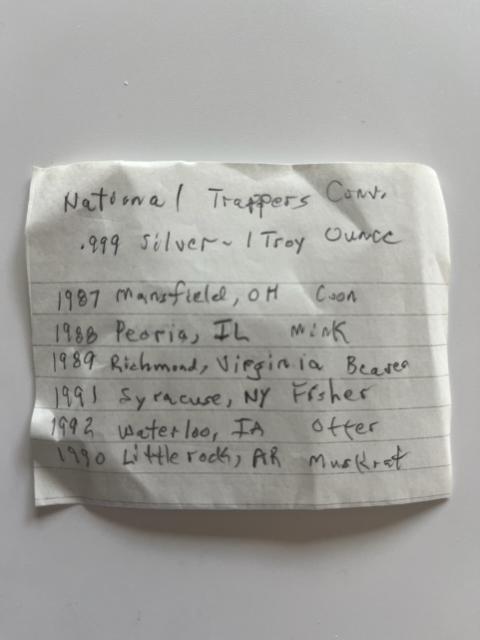 National Trappers Conv.
.999 Silver - 1 Troy Ounce
1987 Mansfield, OH Coon
1988 Peoria, IL Mink
1989 Richmond, Virginia Beaver
1991 Syracuse, NY Fisher
1992 Waterloo, IA Otter
1990 Little rock, AR Muskrat